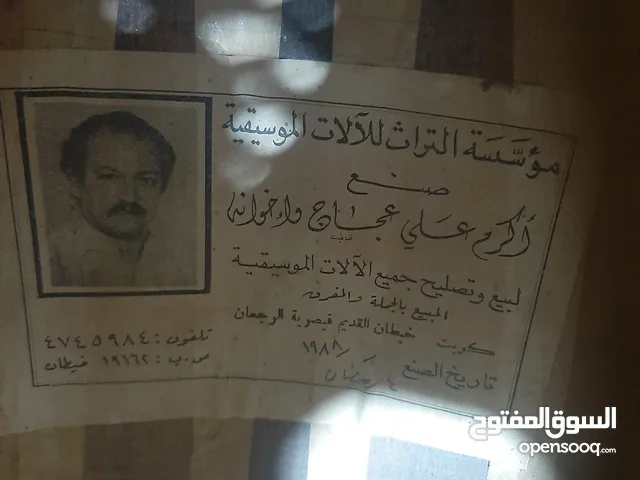 مؤسسة التراث للآلات الموسيقية
صنع
أكرم علي عجاج واخوانه
لبيع وتصليح جميع الآلات الموسيقية
المبيع بالجملة والمفرق
كويت خيطان القديم قيصرية الرجعان
تلفون: ٤٧٤٥٩٨٤
ص.ب: ١٩١٦٢ خيطان
تاريخ الصنع ١٩٨٨
٤ رمضان
السوق المفتوح
opensooq.com